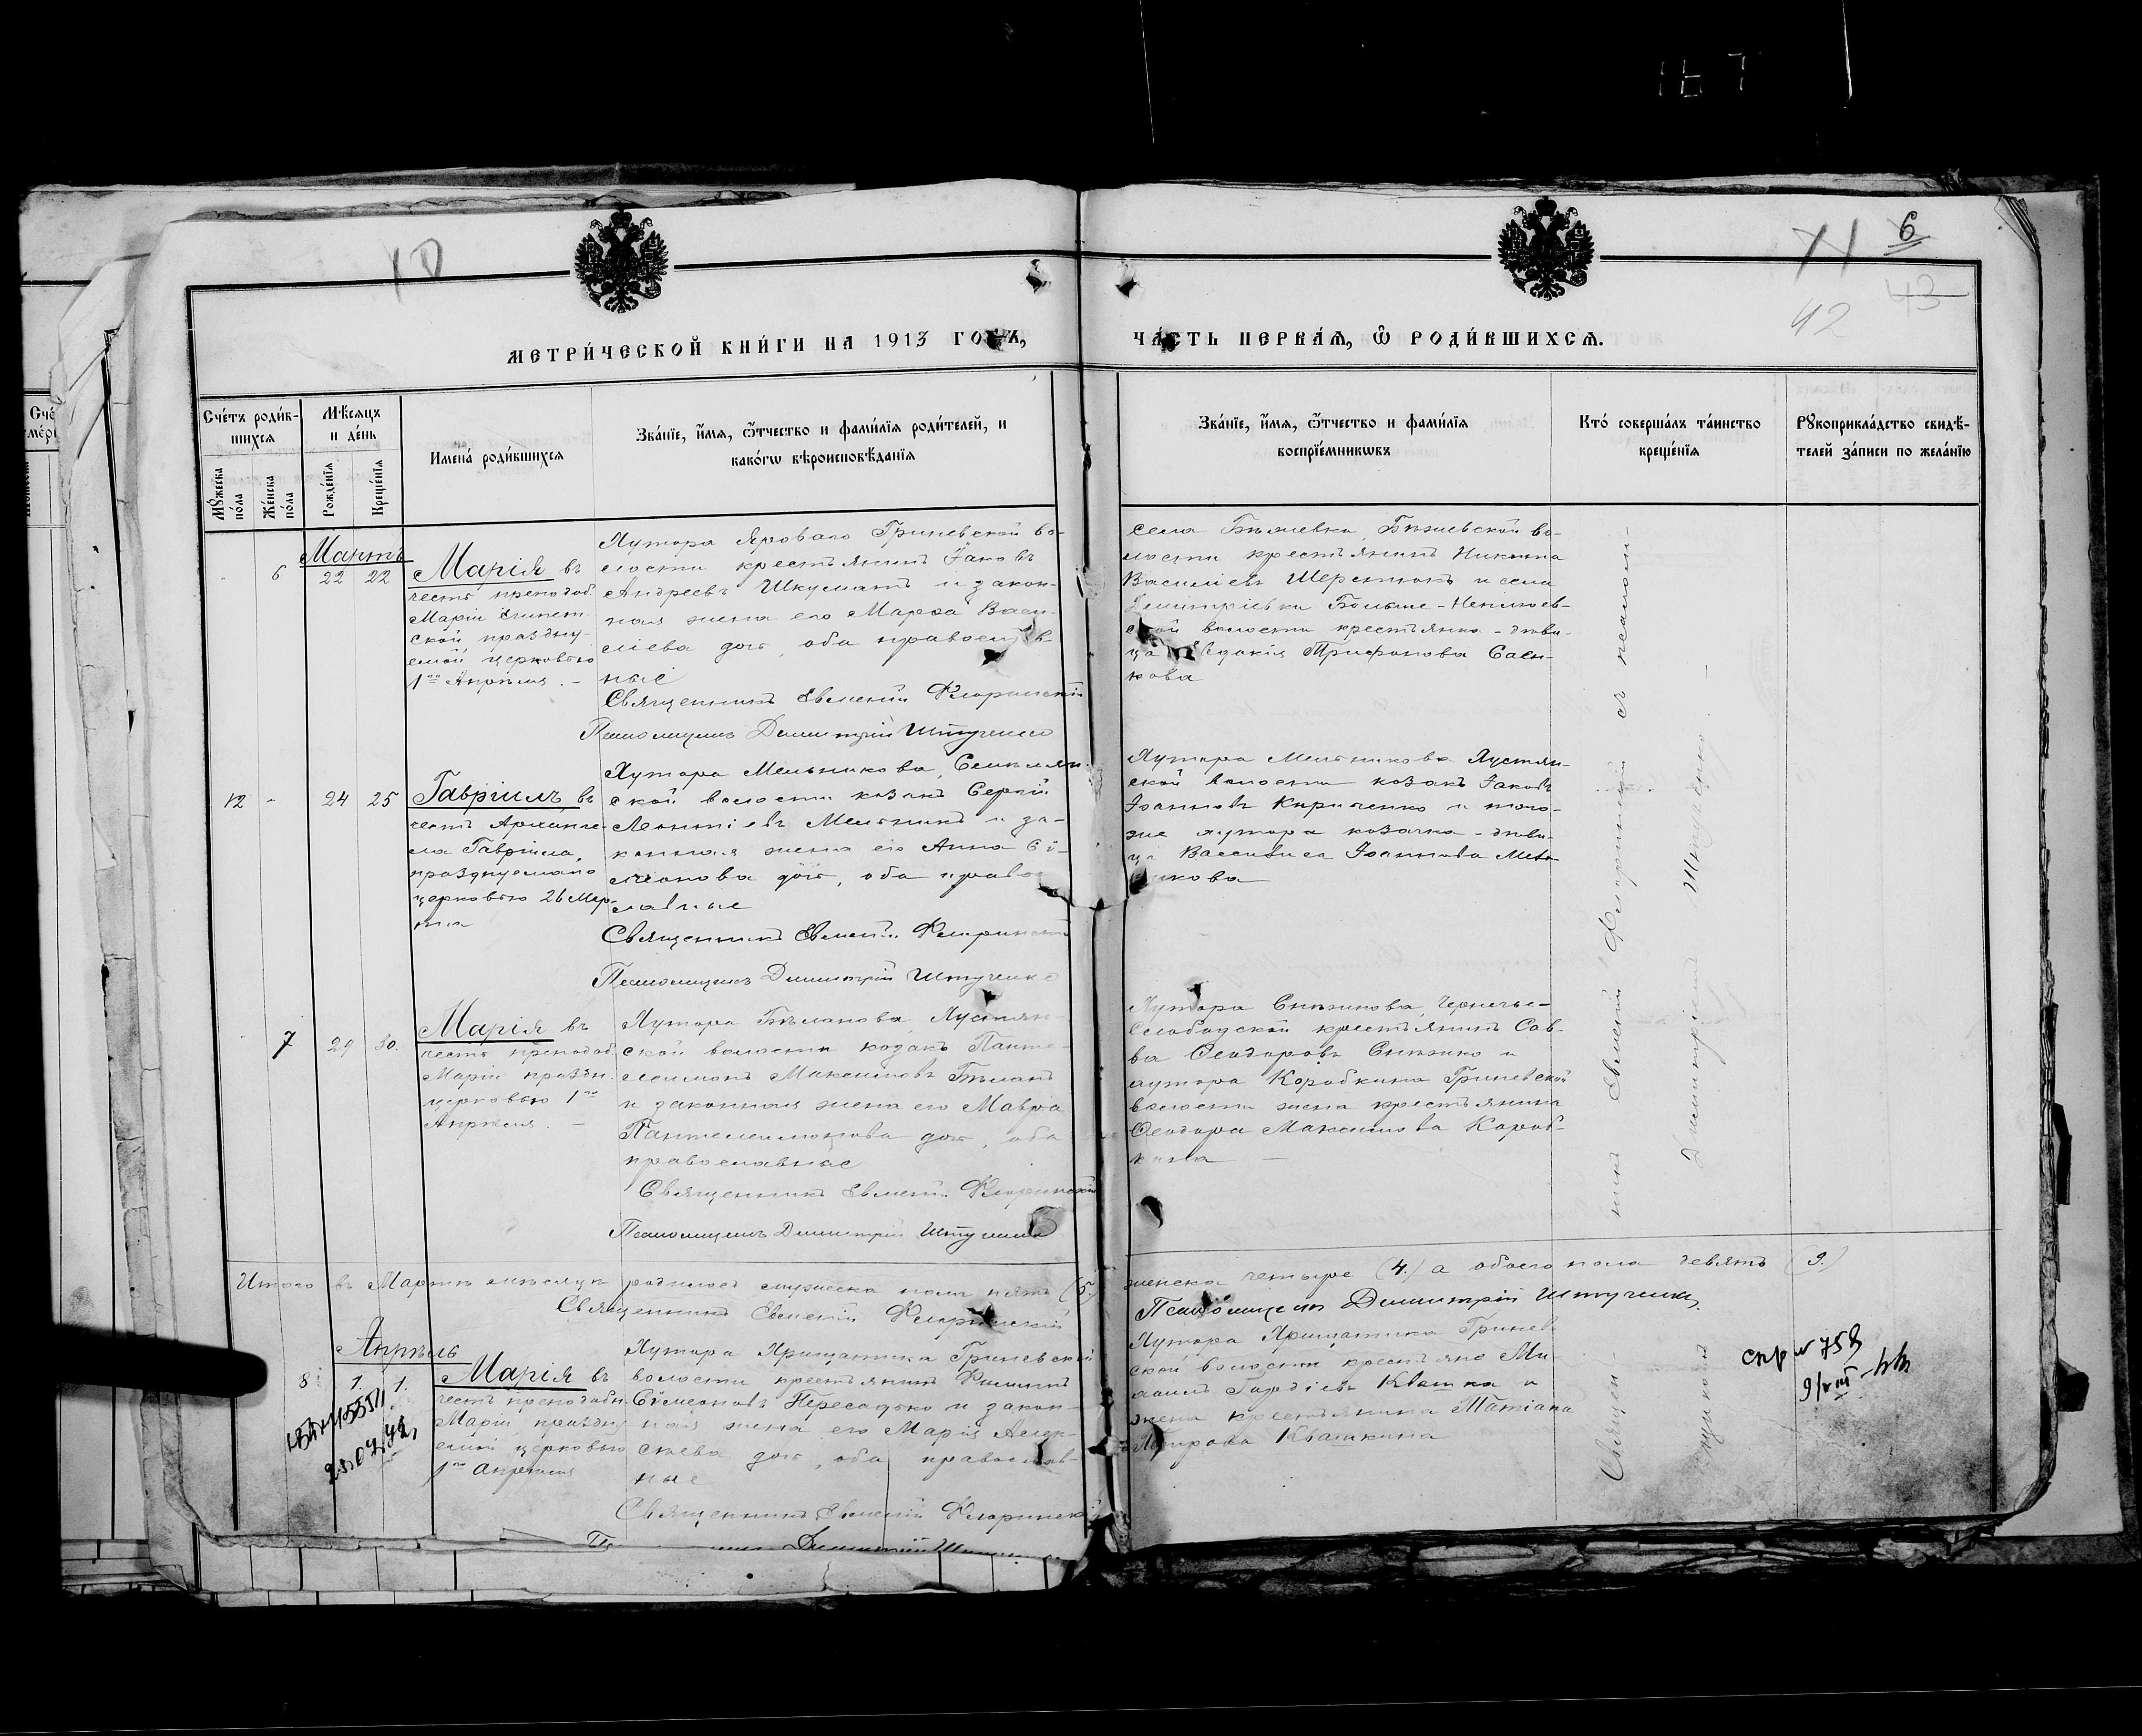 167
10
6
11
43
42
МЕТРИ́ЧЕСКОЙ КНИ́ГИ НА 1913 ГОДЪ,
ЧА́СТЬ ПЕРВА́Ѧ, Ѽ РОДИ́ВШИХСѦ.
Сче́тъ роди́в-
шихсѧ
Мѣ́сѧцъ
и де́нь
Мꙋ́жеска по́ла
Же́нска по́ла
Рожде́нїѧ
Креще́нїѧ
Имена̀ роди́вшихсѧ
Зва́нїе, и҆́мѧ, ѻ҆́тчество и фами́лїѧ роди́телей, и
како́гѡ вѣроисповѣ́данїѧ
Зва́нїе, и҆́мѧ, ѻ҆́тчество и фами́лїѧ
воспрїе́мникѡвъ
Кто̀ соверша́лъ та́инство
креще́нїѧ
Рꙋкоприкла́дство свидѣ́-
телей за́писи по жела́нїю
Мартъ
6 22 22
Марія въ
честь преподоб.
Маріи Египет
ской праздну-
емой церковью
1го Апрѣля. –
Хутора Яроваго Гриневской во-
лости крестьянинъ Іаковъ
Андреевъ Шкуматъ и закон-
ная жена его Марѳа Васи-
ліева дочь, оба православ
ные
Священникъ Евменій Флоринскій
Псаломщикъ Димитрій Штученко
села Бѣлевка, Бѣлевской во-
лости крестьянинъ Никита
Василіевъ Шереметъ и села
Димитріевки Больше-
ской волости крестьянка-дѣви-
ца Трифонова Саен-
кова
12 - 24 25
Гавріилъ въ
честь Арханге-
ла Гавріила,
празднуемаго
церковью 26 Мар-
та
Хутора Мельникова,
ской волости козакъ Сергій
Леонтіевъ Мельникъ и за-
конная жена его Анна Сѵ-
меонова дочь, оба право
славные
Священникъ Евменій Флоринскій
Псаломщикъ Димитрій Штученко
Хутора Мельникова Хустян-
ской волости козакъ Іаковъ
Іоанновъ Кириченко и того-
же хутора козачка-дѣви-
ца Василиса Іоаннова Мель
никова
7 29 30.
Марія въ
честь преподоб.
Маріи праздн.
церковью 1го
Апрѣля. –
Хутора Бѣланова, Хустян-
ской волости козакъ Панте-
леимонъ Максимовъ Бѣланъ
и законная жена его Мавра
Пантелеимонова дочь, оба
православные
Священникъ Евменій Флоринскій
Псаломщикъ Димитрій Штученко
Хутора Снѣжкова, Чернече-
Слободской крестьянинъ Сав-
ва Ѳеодоровъ Снѣжко и
хутора Коробкина Гриневской
волости жена крестьянина
Ѳеодора Максимова Короб-
кина –
Священ-
никъ Евменій Флоринскій съ псалом-
щикомъ
Димитріемъ Штученко –
Итого въ Мартѣ мѣсяцѣ родилось мужска пола пять (5.)
женска четыре (4.) а обоего пола девять (9.)
Священникъ Евменій Флоринскій
Псаломщикъ Димитрій Штученко
Апрѣль
8 1. 1.
Марія въ
честь преподобн.
Маріи, праздну
емой церковью
1го Апрѣля
Хутора Хрящатика Гриневской
волости крестьянинъ Филиппъ
Сѵмеоновъ Пересадько и закон-
ная жена его Марія Алек-
сѣева дочь, оба православ-
ные
Священникъ Евменій Флоринскій
Димитрій
Хутора Хрящатика Гринев
ской волости крестьяне Ми
хаилъ Гордіевъ Квашка и
жена крестьянина Татіана
Квашкина
спр № 758